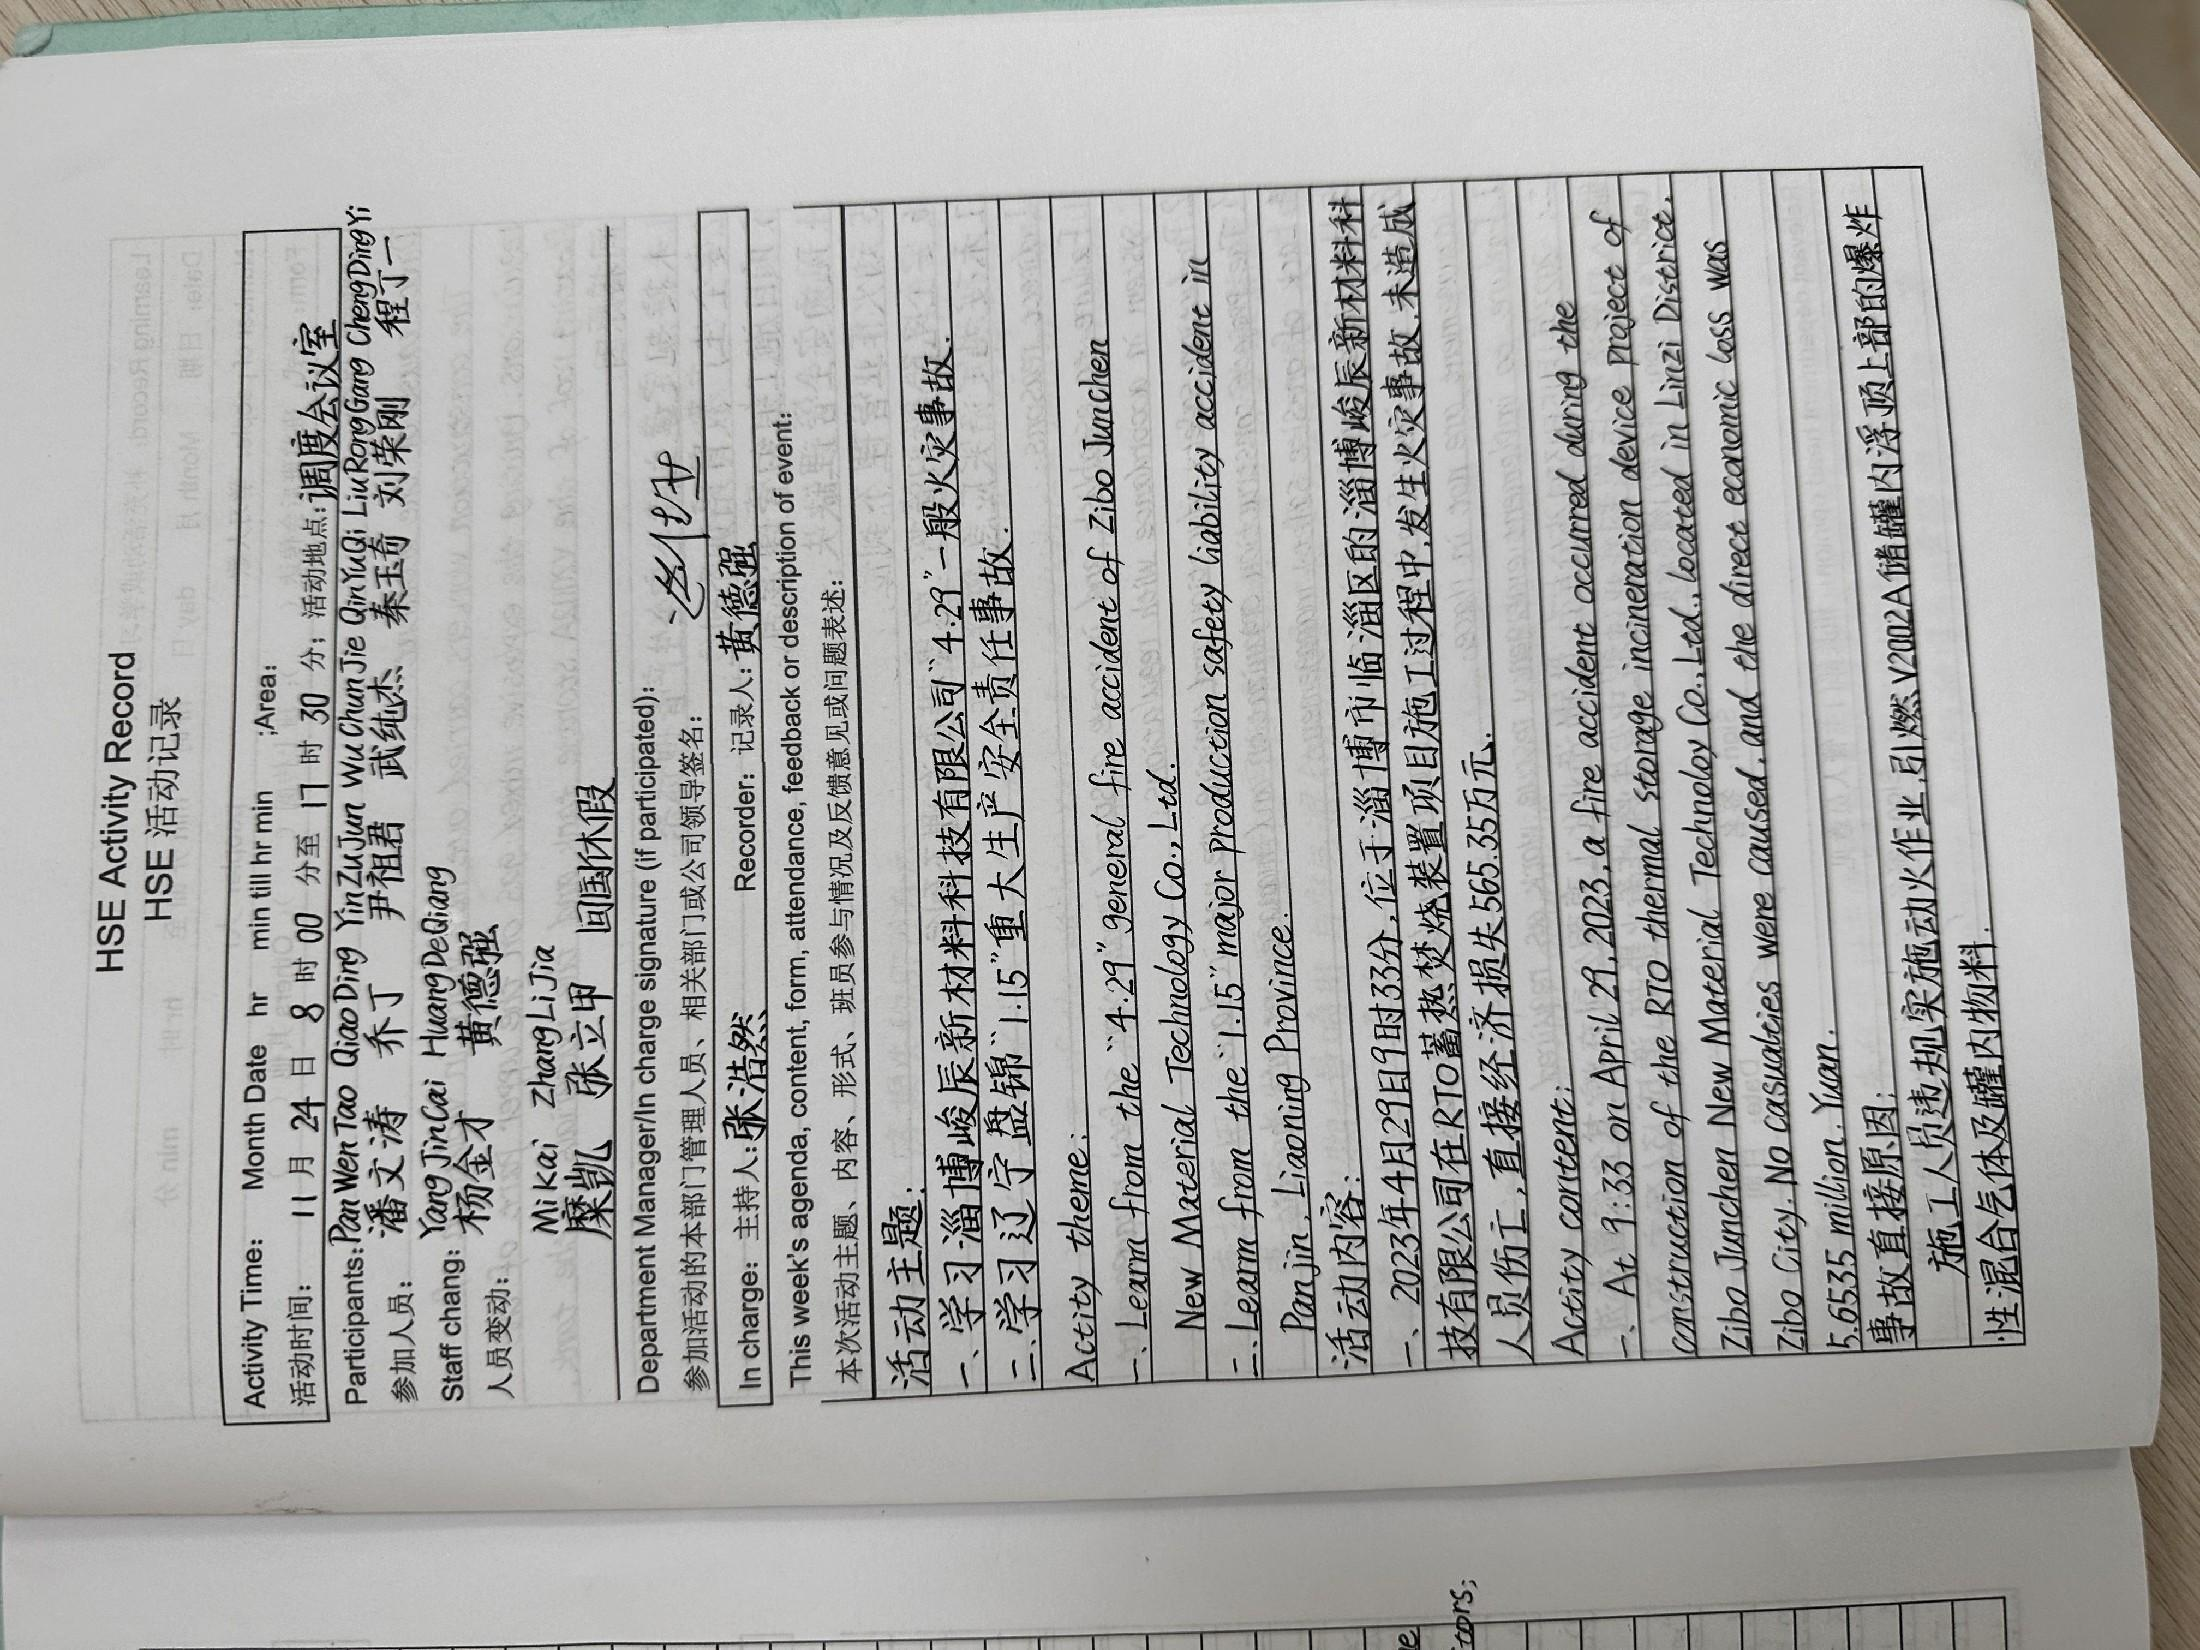 HSE Activity Record
HSE 活动记录
Activity Time: Month Date hr min till hr min ;Area:
活动时间: 11 月 24 日 8 时 00 分至 17 时 30 分; 活动地点: 调度会议室
Participants: Pan Wen Tao Qiao Ding Yin Zu Jun Wu Chun Jie Qin Yu Qi Liu Rong Gang Cheng Ding Yi
参加人员: 潘文涛 乔丁 尹祖君 武纯杰 秦玉奇 刘荣刚 程丁一
Staff chang: Yang Jin Cai Huang De Qiang
人员变动: 杨金才 黄德强
Mi Kai Zhang Li Jia
糜凯 张立甲 回国休假
Department Manager/In charge signature (if participated):
参加活动的本部门管理人员、相关部门或公司领导签名:
In charge: 主持人: 张浩然 Recorder: 记录人: 黄德强
This week's agenda, content, form, attendance, feedback or description of event:
本次活动主题、内容、形式、班员参与情况及反馈意见或问题表述:
活动主题:
一、学习淄博峻辰新材料科技有限公司"4.29"一般火灾事故.
二、学习辽宁盘锦"1.15"重大生产安全责任事故.
Actity theme:
一、Learn from the "4.29" general fire accident of Zibo Junchen
New Material Technology Co., Ltd.
二、Learn from the "1.15" major production safety liability accident in
Panjin, Liaoning Province.
活动内容:
一、2023年4月29日9时33分,位于淄博市临淄区的淄博峻辰新材料科
技有限公司在RTO蓄热焚烧装置项目施工过程中,发生火灾事故,未造成
人员伤亡,直接经济损失565.35万元.
Actity content:
一、At 9:33 on April 29, 2023, a fire accident occurred during the
construction of the RTO thermal storage incineration device project of
Zibo Junchen New Material Technoloy Co., Ltd., located in Linzi District,
Zibo City. No casualties were caused, and the direct economic loss was
5.6535 million. Yuan.
事故直接原因:
施工人员违规实施动火作业,引燃V2002A储罐内浮顶上部的爆炸
性混合气体及罐内物料.
tors;